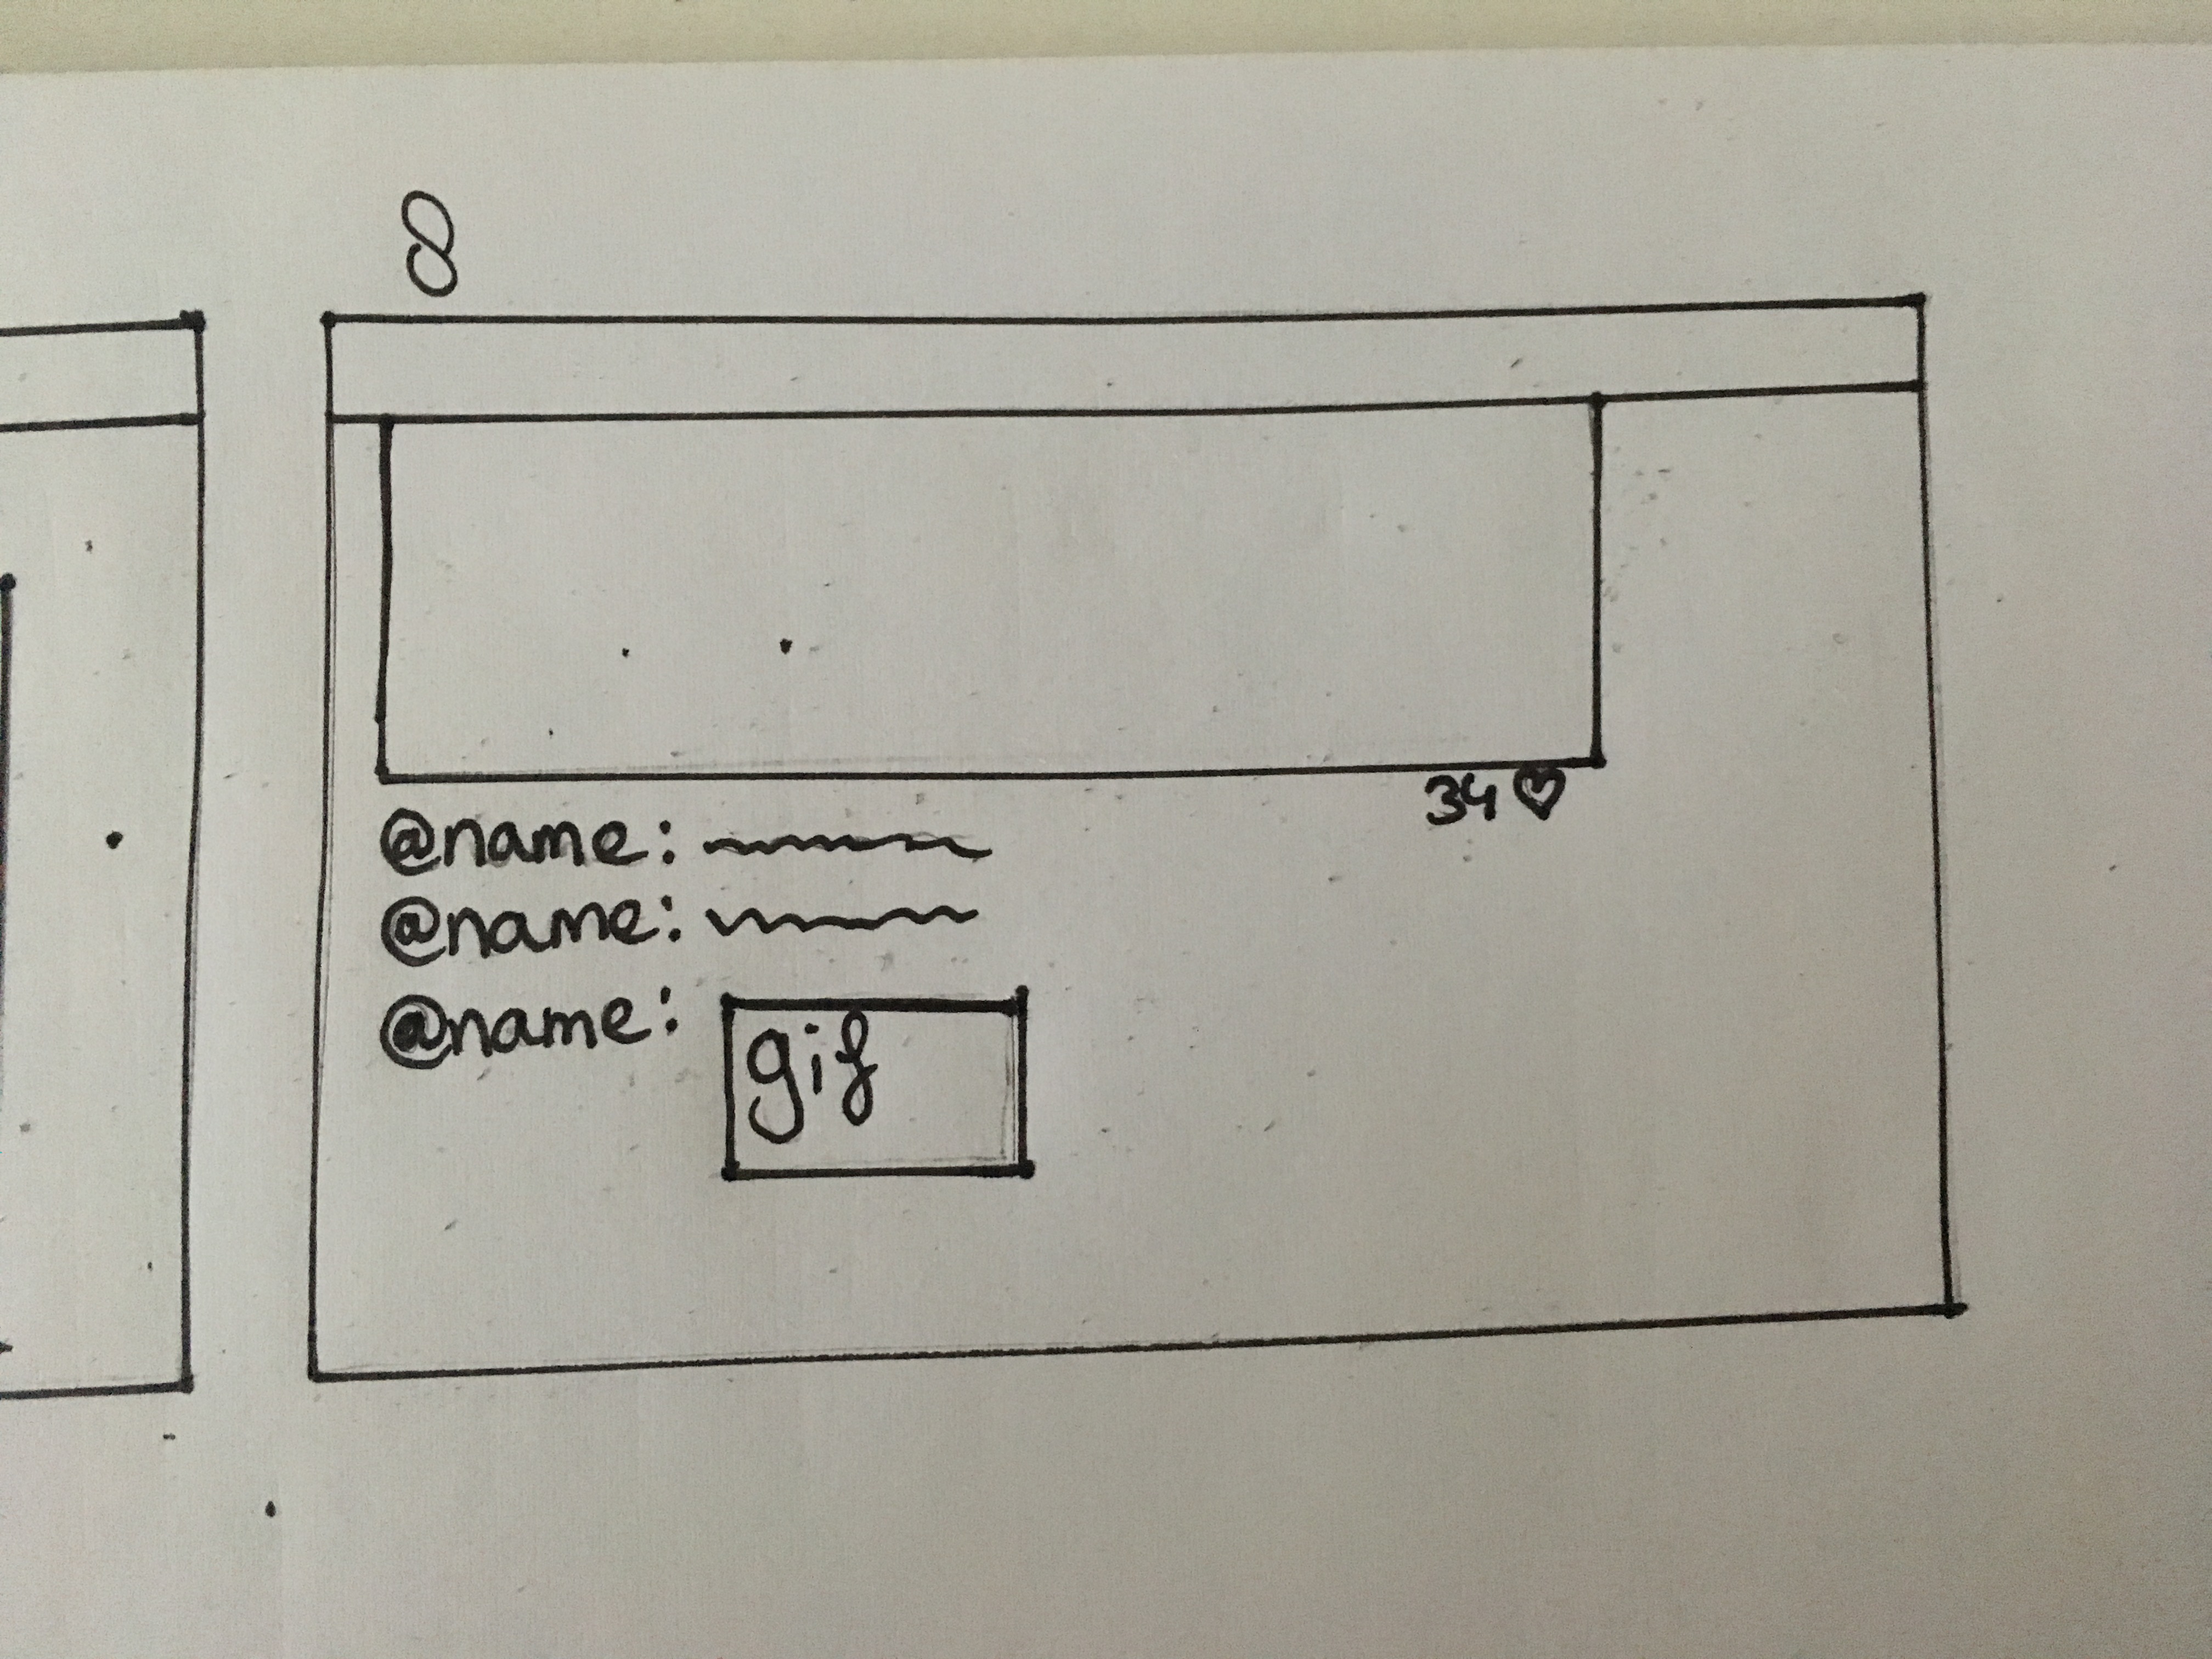 8
34♡
@name:
@name:
@name:
gif